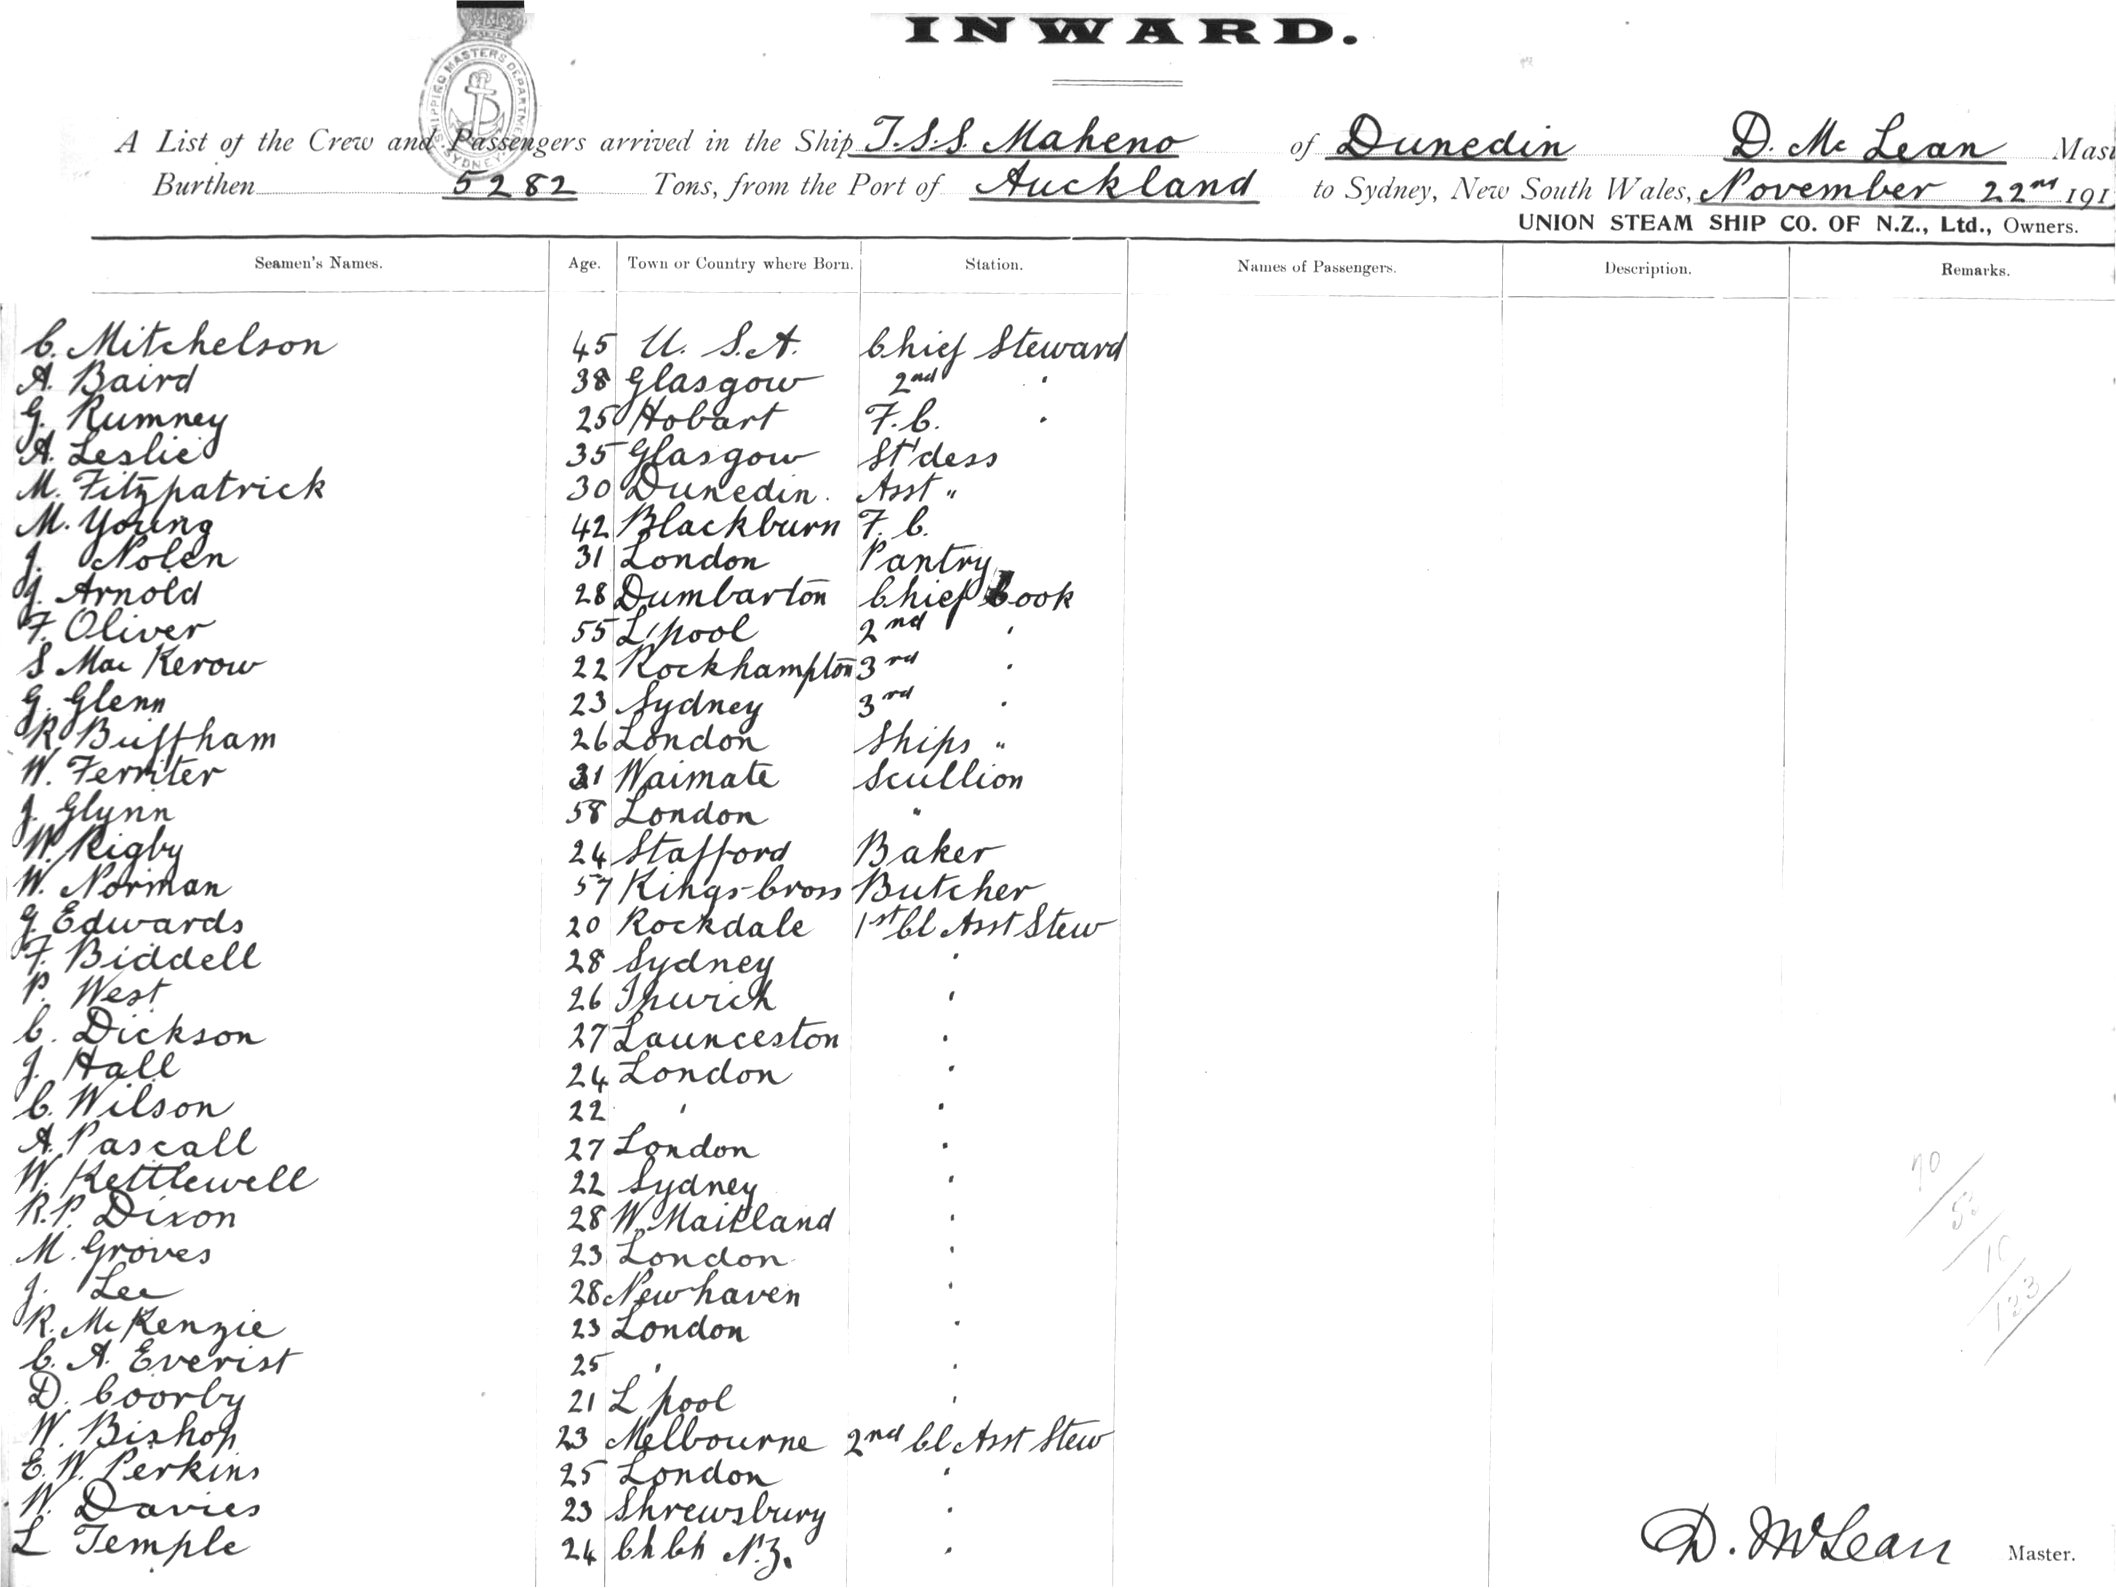 INWARD.
SHIPPING MASTERS DEPARTMENT SYDNEY
A List of the Crew and Passengers arrived in the Ship T.S.S. Maheno of Dunedin D. Mc Lean Mas
Burthen 5282 Tons, from the Port of Auckland to Sydney, New South Wales, November 22nd 191
UNION STEAM SHIP CO. OF N.Z., Ltd., Owners.
Seamen's Names. Age. Town or Country where Born. Station. Names of Passengers. Description. Remarks.
C. Mitchelson 45 U. S.A. Chief Steward
A. Baird 38 Glasgow 2nd "
G. Rumney 25 Hobart F.C. "
A. Leslie 35 Glasgow St'dess
M. Fitzpatrick 30 Dunedin. Asst "
M. Young 42 Blackburn F.C.
J. Nolen 31 London Pantry
J. Arnold 28 Dumbarton Chief Cook
F. Oliver 55 L'pool 2nd "
S Mac Kerow 22 Rockhampton 3rd "
G. Glenn 23 Sydney 3rd "
R Buffham 26 London Ships "
W. Ferriter 31 Waimate Scullion
J. Glynn 58 London "
W. Rigby 24 Stafford Baker
W. Norman 57 Kings-Cross Butcher
G. Edwards 20 Rockdale 1st Cl Asst Stew
F. Biddell 28 Sydney "
P. West 26 Ipwich "
C. Dickson 27 Launceston "
J. Hall 24 London "
C. Wilson 22 " "
A. Pascall 27 London "
W. Kettlewell 22 Sydney "
R.P. Dixon 28 W. Maitland "
M. Groves 23 London "
J. Lee 28 Newhaven "
R. Mc Kenzie 23 London "
C. A. Everist 25 " "
D. Coorby 21 L'pool "
W. Bishop 23 Melbourne 2nd Cl Asst Stew
E. W. Perkins 25 London "
W. Davies 23 Shrewsbury "
L Temple 24 Ch Ch N.Z. "
70
133
D. McLean Master.